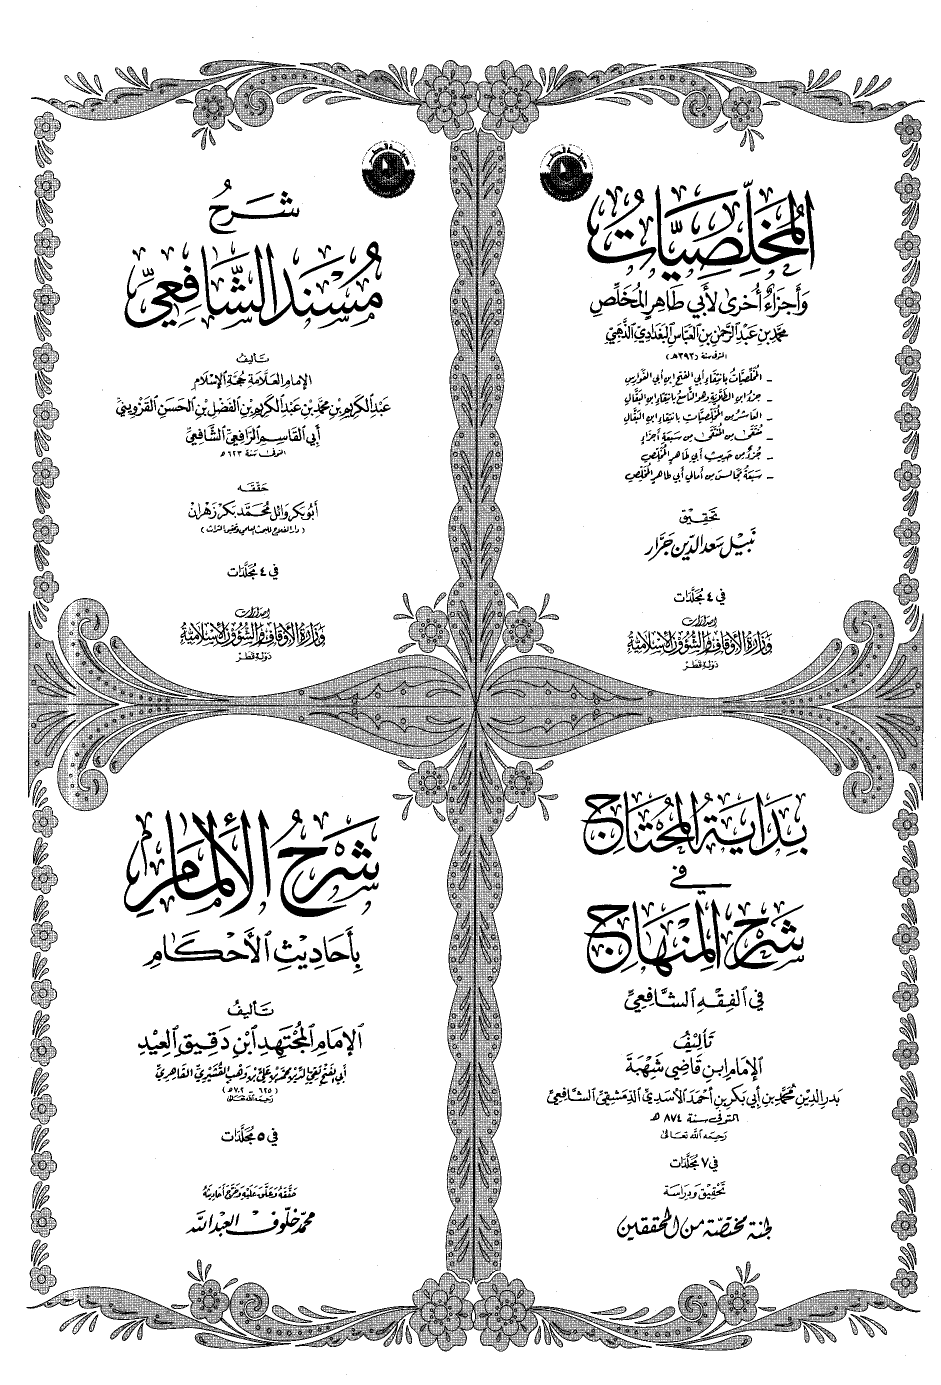 المُخَلِّصِيَّات
وَأَجزَاءٌ أُخرى لأَبي طَاهِرٍ المُخَلِّصِ
محمّد بن عبد الرحمٰن بن العبّاس البغدادي الذّهبي
المتوفى سنة (٣٩٣هـ)
_ المُخلِّصيّات بانتقاءِ أبي الفتح ابن أبي الفوارس
_ جزءُ ابن الطَّلَّاية وهو التاسع بانتقاءِ ابن البقّال
_ العاشر من المُخلّصيّات بانتقاءِ ابن البقّال
_ مُنتقى من المُنتقى من سبعةِ أجزاء
_ جُزءٌ من حديث أبي طاهر المُخلّص
_ سبعةُ مجالس من أمالي أبي طاهر المُخلّص
تحقيق
نبيل سعد الدين جرّار
في ٤ مجلّدات
إصدارات
وزارة الأوقاف والشؤون الإسلامية
دولة قطر
شَرحُ
مُسنَد الشَّافِعِيِّ
تأليف
الإمام العلّامة حجّة الإسلام
عبد الكريم بن محمد بن عبد الكريم بن الفضل بن الحسن القزويني
أبي القاسم الرافعي الشّافعي
المتوفى سنة ٦٢٣ هـ
حققه
أبو بكر وائل محمّد بكر زهران
(دار الفلاح للبحث العلمي وتحقيق التراث)
في ٤ مجلّدات
إصدارات
وزارة الأوقاف والشؤون الإسلامية
دولة قطر
بِدَايَةُ المُحْتَاج
في
شَرحِ المِنْهَاج
في الفِقْهِ الشَّافِعِيِّ
تَأليفُ
الإمام ابن قاضي شهبة
بدر الدين محمّد بن أبي بكر بن أحمد الأسدي الدمشقي الشافعي
المتوفى سنة ٨٧٤ هـ
رحمه الله تعالى
في ٧ مجلّدات
تحقيق ودراسة
لجنة مختصّة من المحققين
شَرْحُ الإِلْمَامِ
بِأَحَادِيثِ الأَحْكَامِ
تأليفُ
الإمامِ المُجْتَهِدِ ابْنِ دَقِيقِ العِيْدِ
أبي الفتح تقي الدين محمد بن علي بن وهب القشيري القاهري
(٦٢٥ - ٧٠٢هـ)
رحمه الله تعالى
في ٥ مجلّدات
حقّقه وعلّق عليه وخرّج أحاديثه
محمّد خلّوف العبد الله